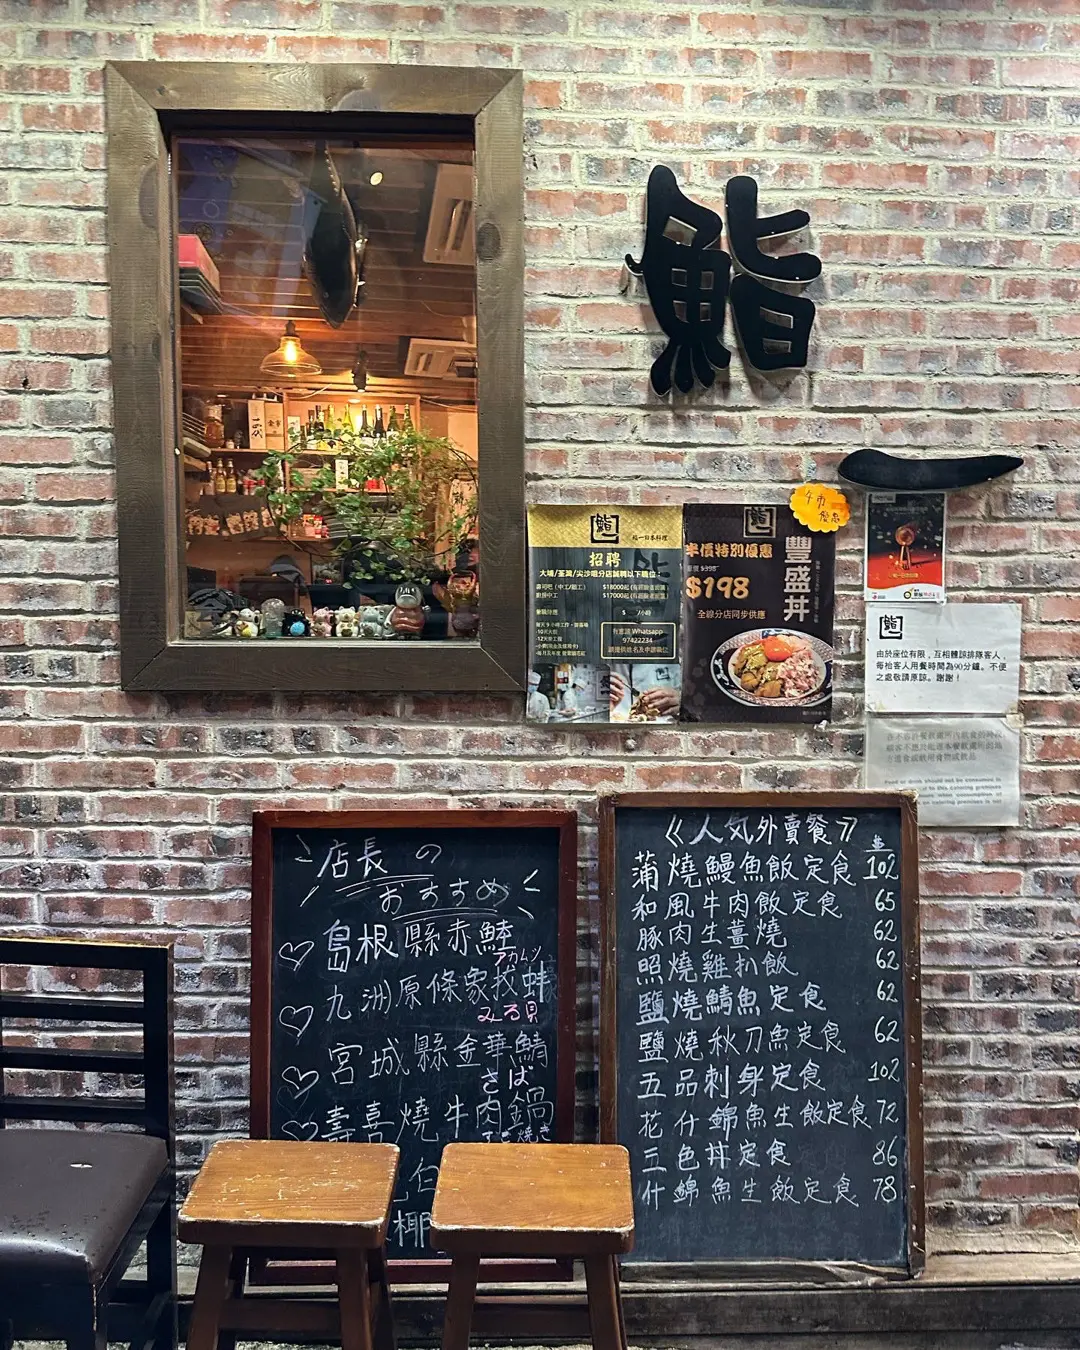 鮨
鮨
鮨一日本料理
招聘
大埔/荃灣/尖沙咀分店誠聘以下職位：
$18000起
$17000起
有意請 Whatsapp
97422234
請提供姓名及申請職位
鮨
午市
半價特別優惠
$398
$198
全線分店同步供應
豐盛丼
鮨
由於座位有限，互相體諒排隊客人，
每枱客人用餐時間為90分鐘。不便
之處敬請原諒。謝謝！
店長の
おすすめ
島根縣赤鯥
アカムツ
九洲原條象拔蚌
みる貝
宮城縣金華鯖
さば
壽喜燒牛肉鍋
《人気外賣餐》
$
蒲燒鰻魚飯定食 102
和風牛肉飯定食 65
豚肉生薑燒 62
照燒雞扒飯 62
鹽燒鯖魚定食 62
鹽燒秋刀魚定食 62
五品刺身定食 102
花什錦魚生飯定食 72
三色丼定食 86
什錦魚生飯定食 78